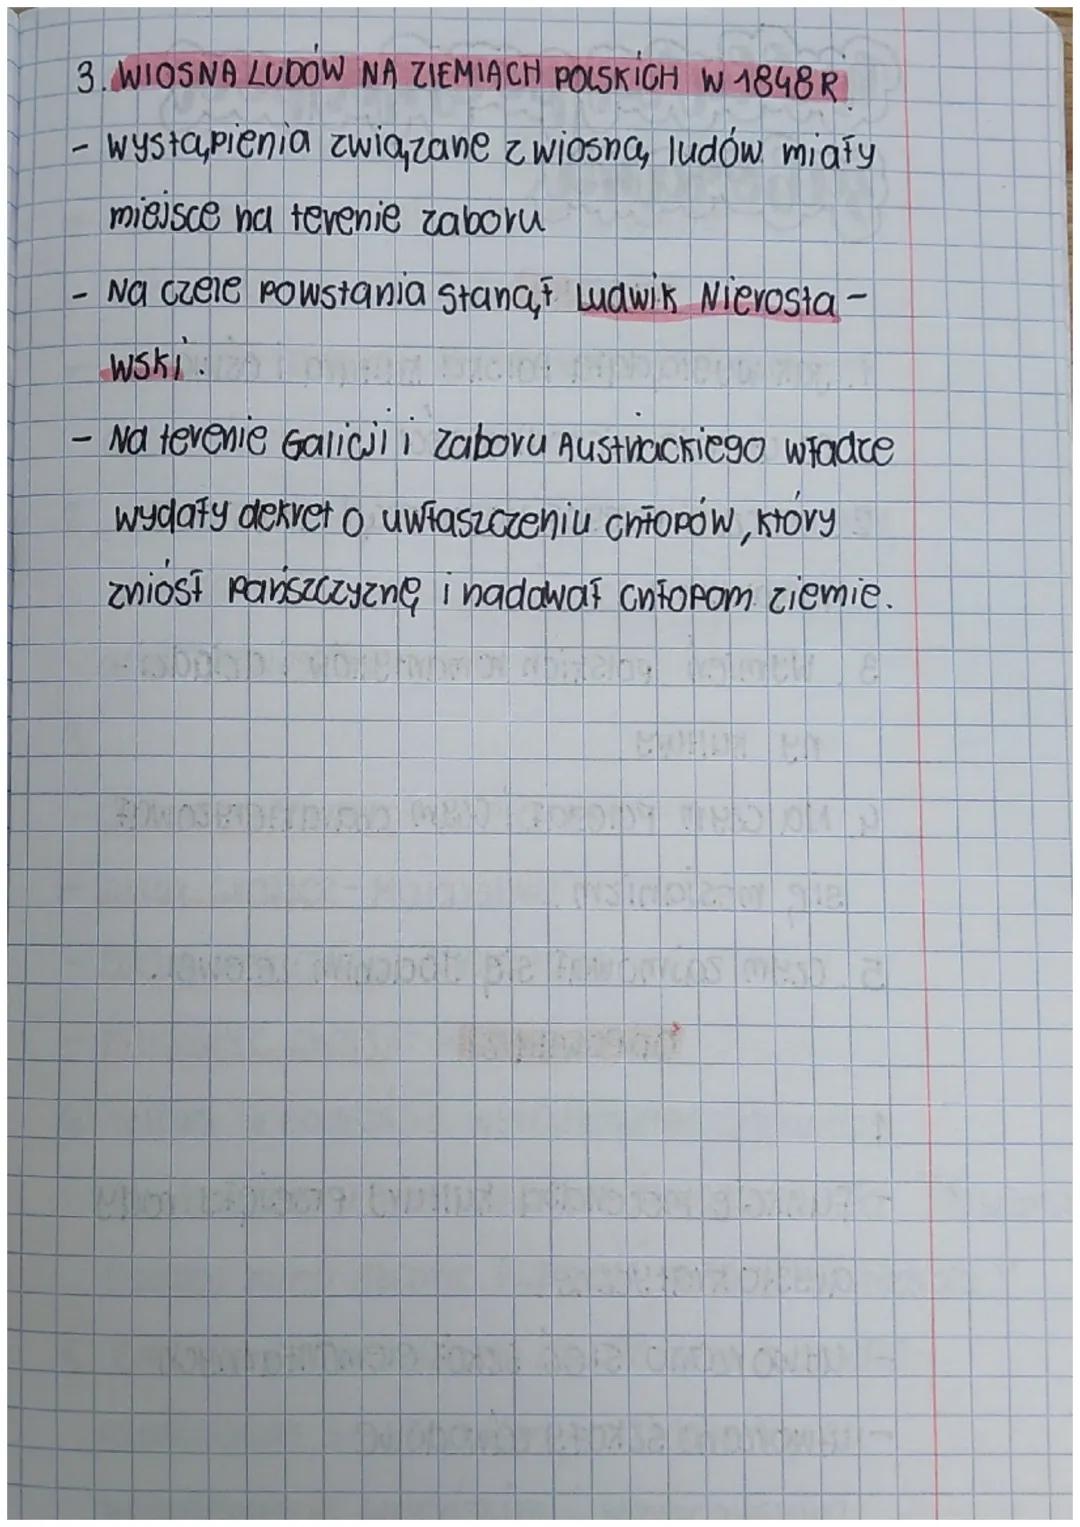 3. WIOSNA LUDÓW NA ZIEMIACH POLSKICH W 1848 R.
- wystąpienia związane z wiosną ludów miały
miejsce na terenie zaboru
- Na czele powstania stanął Ludwik Nierosta-
wski.
- Na terenie Galicji i zaboru Austriackiego władce
wydały dekret o uwłaszczeniu chłopów, który
zniósł pańszczyznę i nadawał chłopom ziemie.